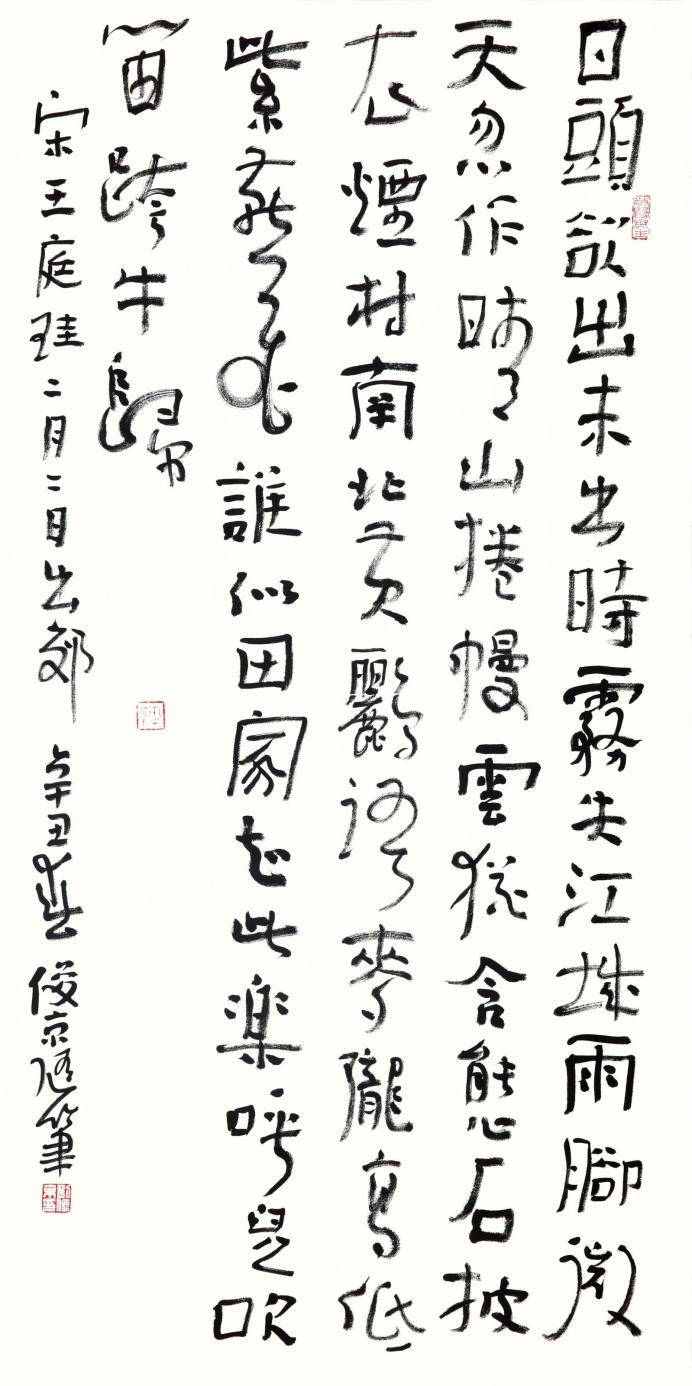 日頭欲出未出時霧失江城雨腳微
天忽作晴山捲幔雲猶含態石披
衣煙村南北黃鸝語麥隴高低
紫燕飛誰似田家知此楽呼兒吹
笛跨牛歸
宋王庭珪二月二日出郊 辛丑春俊京隨筆